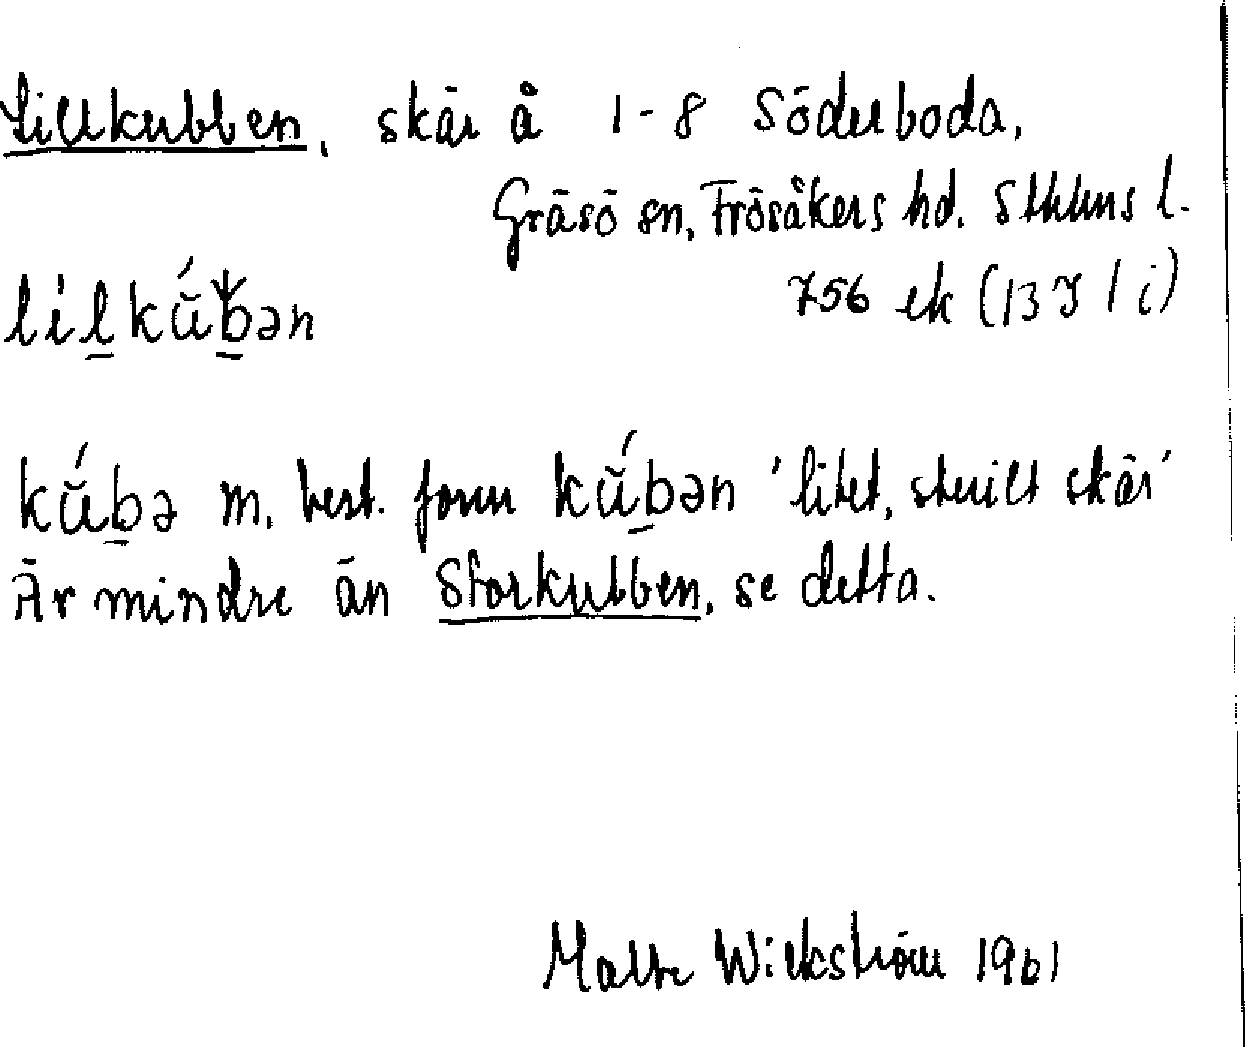 Lillkubben, skär å 1-8 Söderboda,
Gräsö sn, Frösåkers hd. Sthlms l.
lilkŭ́bən 756 ek (13 I 1 i)
kŭ́bə m. best. form kŭ́bən 'litet, runt skär'
Är mindre än Storkubben, se detta.
Malte Wickström 1961